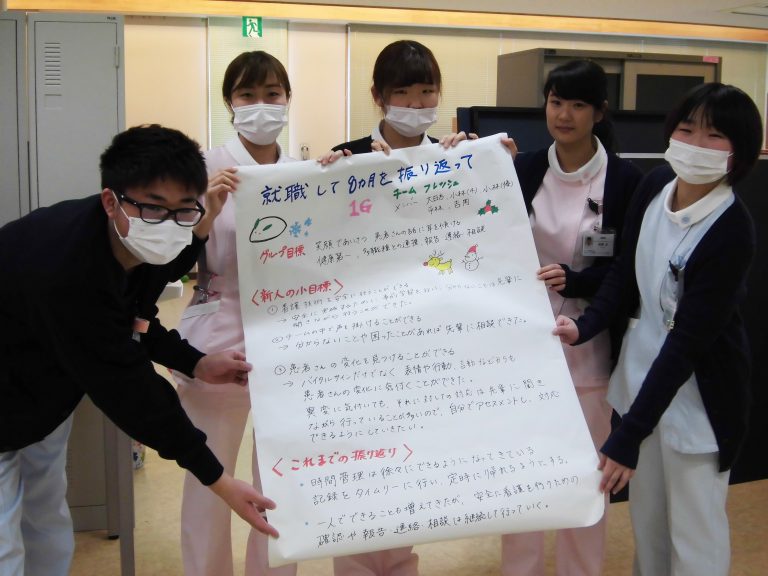 就職して8カ月を振り返って
1G
チーム フレッシュ
メンバー 大日方、小林(千)、小林(優)
平林、吉岡
グループ目標 笑顔であいさつ 患者さんの話に耳を傾ける
健康第一、多職種との連携、報告 連絡 相談
〈新人の小目標〉
① 看護技術を安全に行うことができる
→ 安全に実施するために
聞きながら行うことができた。
② チームの中で声を掛けることができる
→ 分からないことや困ったことがあれば先輩に相談できた。
③ 患者さんの変化を見つけることができる
→ バイタルサインだけでなく、表情や行動、言動などからも
患者さんの変化に気付くことができた。
異変に気付いても、それに対しての対応は先輩に聞き
ながら行っていることが多いので、自分でアセスメントし、対応
できるようにしていきたい。
〈これまでの振り返り〉
・時間管理は徐々にできるようになってきている
記録をタイムリーに行い、定時に帰れるようにする。
・一人でできることも増えてきたが、安全に看護を行うための
確認や報告・連絡・相談は継続して行っていく。